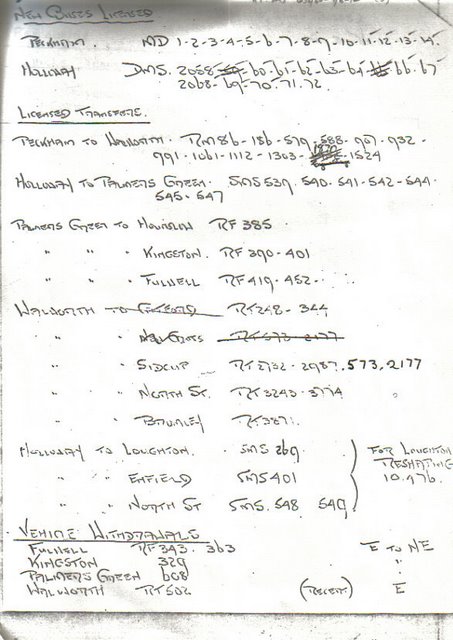 NEW BUSES LICENSED
PECKHAM. MD 1-2-3-4-5-6-7-8-9-10-11-12-13-14.
HOLLOWAY DMS. 2058-59-60-61-62-63-64-65-66-67
2068-69-70.71.72.
LICENSED TRANSFERS.
PECKHAM TO WALWORTH. RM 86-186-579-588-967-932-
991-1061-1112-1303-1524
HOLLOWAY TO PALMERS GREEN. SMS 539. 540-541-542-544-
545-547
PALMERS GREEN TO HOUNSLOW RF 385
" " " KINGSTON. RF 390-401
" " " FULWELL RF 419-452-
WALWORTH TO RT 248-344
" " NEW CROSS RT 573-2177
" " SIDCUP RT 2732-2987.573,2177
" " NORTH ST. RT 3243-3774
" " BROMLEY RT 3871.
HOLLOWAY TO LOUGHTON. SMS 269 FOR LOUGHTON
" " ENFIELD SMS 401 RESHAPING
" " NORTH ST SMS. 548 549 10.4.76.
VEHICLE WITHDRAWALS
FULWELL RF 343. 363 E TO NE
KINGSTON 329 "
PALMERS GREEN 608 "
WALWORTH RT 502 (RECERT) E